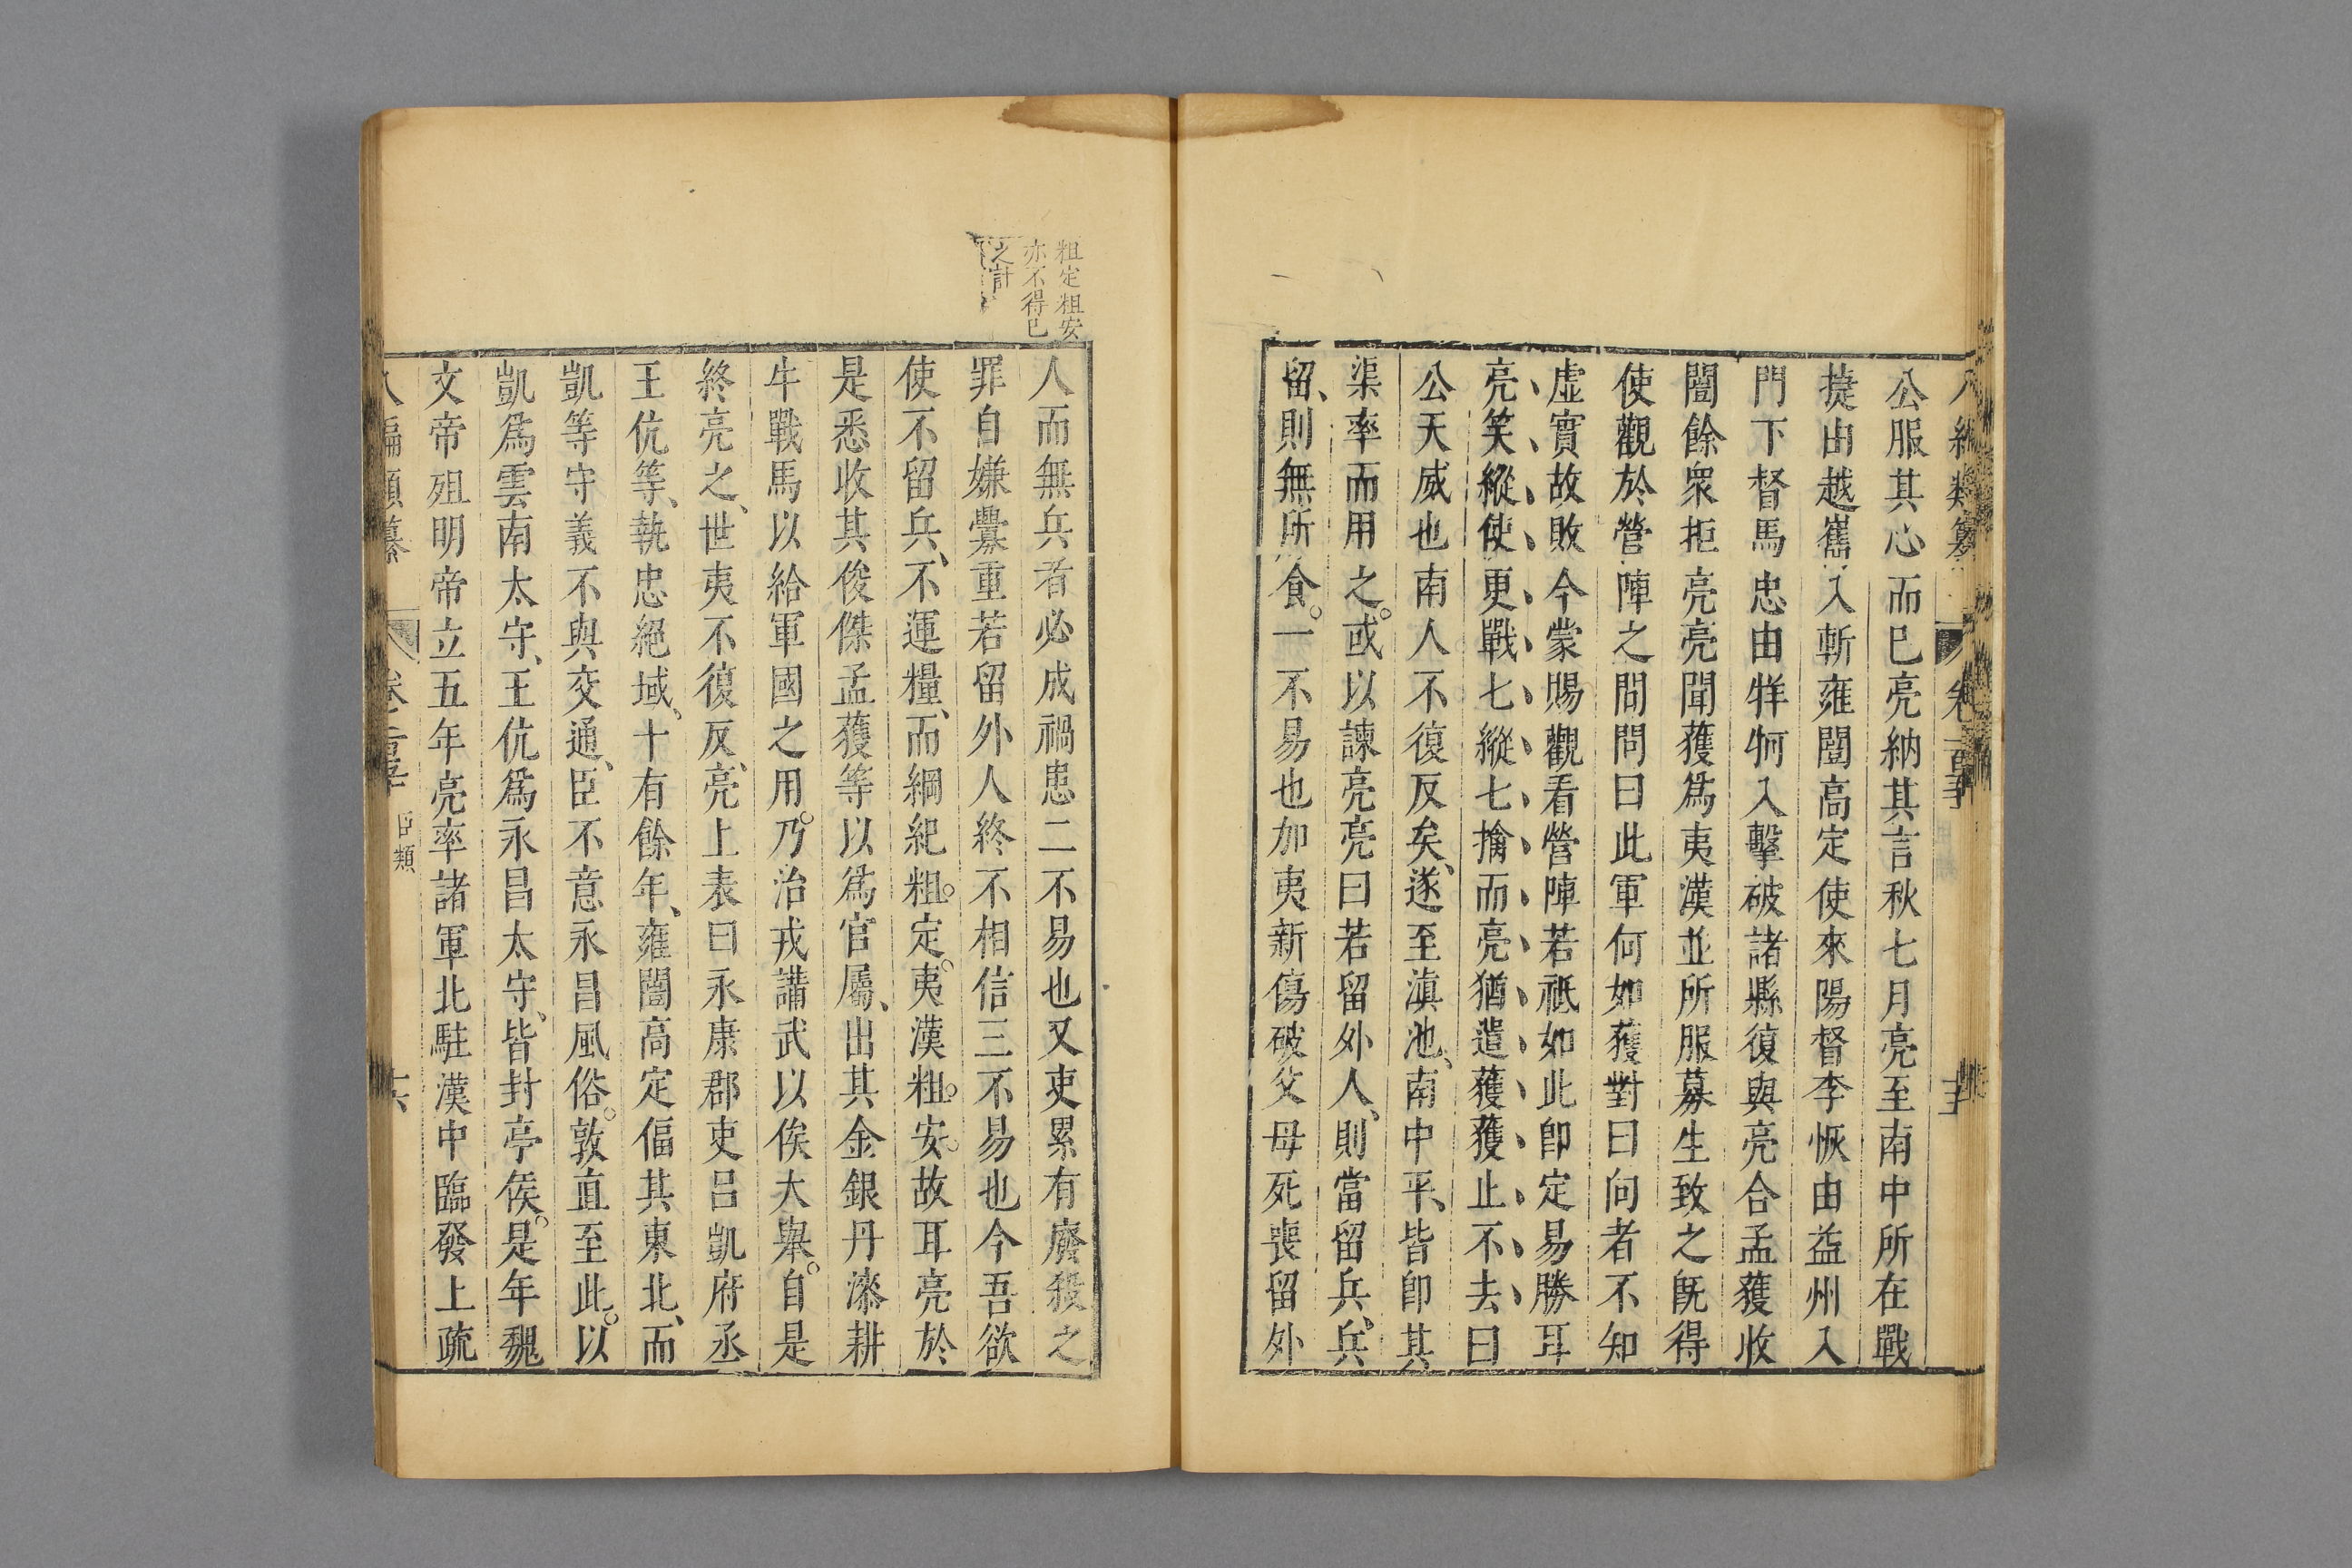 公服其心而已亮納其言秋七月亮至南中所在戰
捷由越嶲入斬雍闓高定使來陽督李恢由益州入
門下督馬忠由牂牁入擊破諸縣復與亮合孟獲收
闓餘衆拒亮亮聞獲爲夷漢並所服募生致之旣得
使觀於營陣之間問曰此軍何如獲對曰向者不知
虛實故敗今蒙賜觀看營陣若祇如此卽定易勝耳
亮笑縱使更戰七縱七擒而亮猶遣獲獲止不去曰
公天威也南人不復反矣、遂至滇池、南中平、皆卽其
渠率而用之。或以諫亮亮曰若留外人、則當留兵、兵
留、則無所食。一不易也加夷新傷破父母死喪留外
粗定粗安
亦不得已
之計
人而無兵者必成禍患二不易也又吏累有廢殺之
罪自嫌釁重若留外人終不相信三不易也今吾欲
使不留兵、不運糧、而綱紀粗。定。夷漢粗。安。故耳亮於
是悉收其俊傑孟獲等以爲官屬、出其金銀丹漆耕
牛戰馬以給軍國之用。乃治戎講武以俟大舉。自是
終亮之、世夷不復反、亮上表曰永康郡吏呂凱府丞
王伉等、執忠絕域、十有餘年、雍闓高定偪其東北、而
凱等守義不與交通、臣不意永昌風俗。敦直至此。以
凱爲雲南太守、王伉爲永昌太守、皆封亭侯。是年魏
文帝殂明帝立五年亮率諸軍北駐漢中臨發上疏
八編類纂 臣類